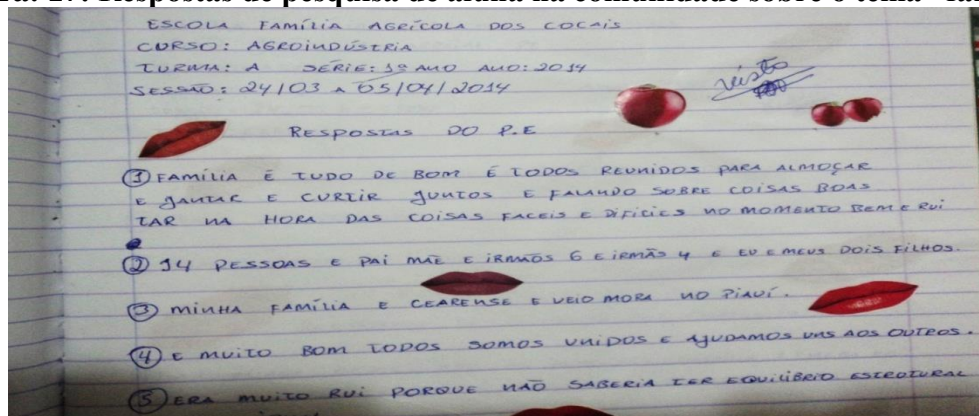 Respostas de pesquisa de aluna na comunidade sobre o tema
ESCOLA FAMÍLIA AGRÍCOLA DOS COCAIS
CURSO: AGROINDÚSTRIA
TURMA: A SÉRIE: 1º ANO ANO: 2014
SESSÃO: 24/03 A 05/04/2014
Visto
RESPOSTAS DO P.E
① FAMÍLIA É TUDO DE BOM É TODOS REUNIDOS PARA ALMOÇAR
E JANTAR E CURTIR JUNTOS E FALANDO SOBRE COISAS BOAS
TAR NA HORA DAS COISAS FACEIS E DIFICIES NO MOMENTO BEM E RUI
② 14 PESSOAS E PAI MÃE E IRMÃOS 6 E IRMÃS 4 E EU E MEUS DOIS FILHOS.
③ MINHA FAMÍLIA E CEARENSE E VEIO MORA NO PIAUÍ.
④ E MUITO BOM TODOS SOMOS UNIDOS E AJUDAMOS UNS AOS OUTROS.
⑤ ERA MUITO RUI PORQUE NÃO SABERIA TER EQUILÍBRIO ESTROTURAL